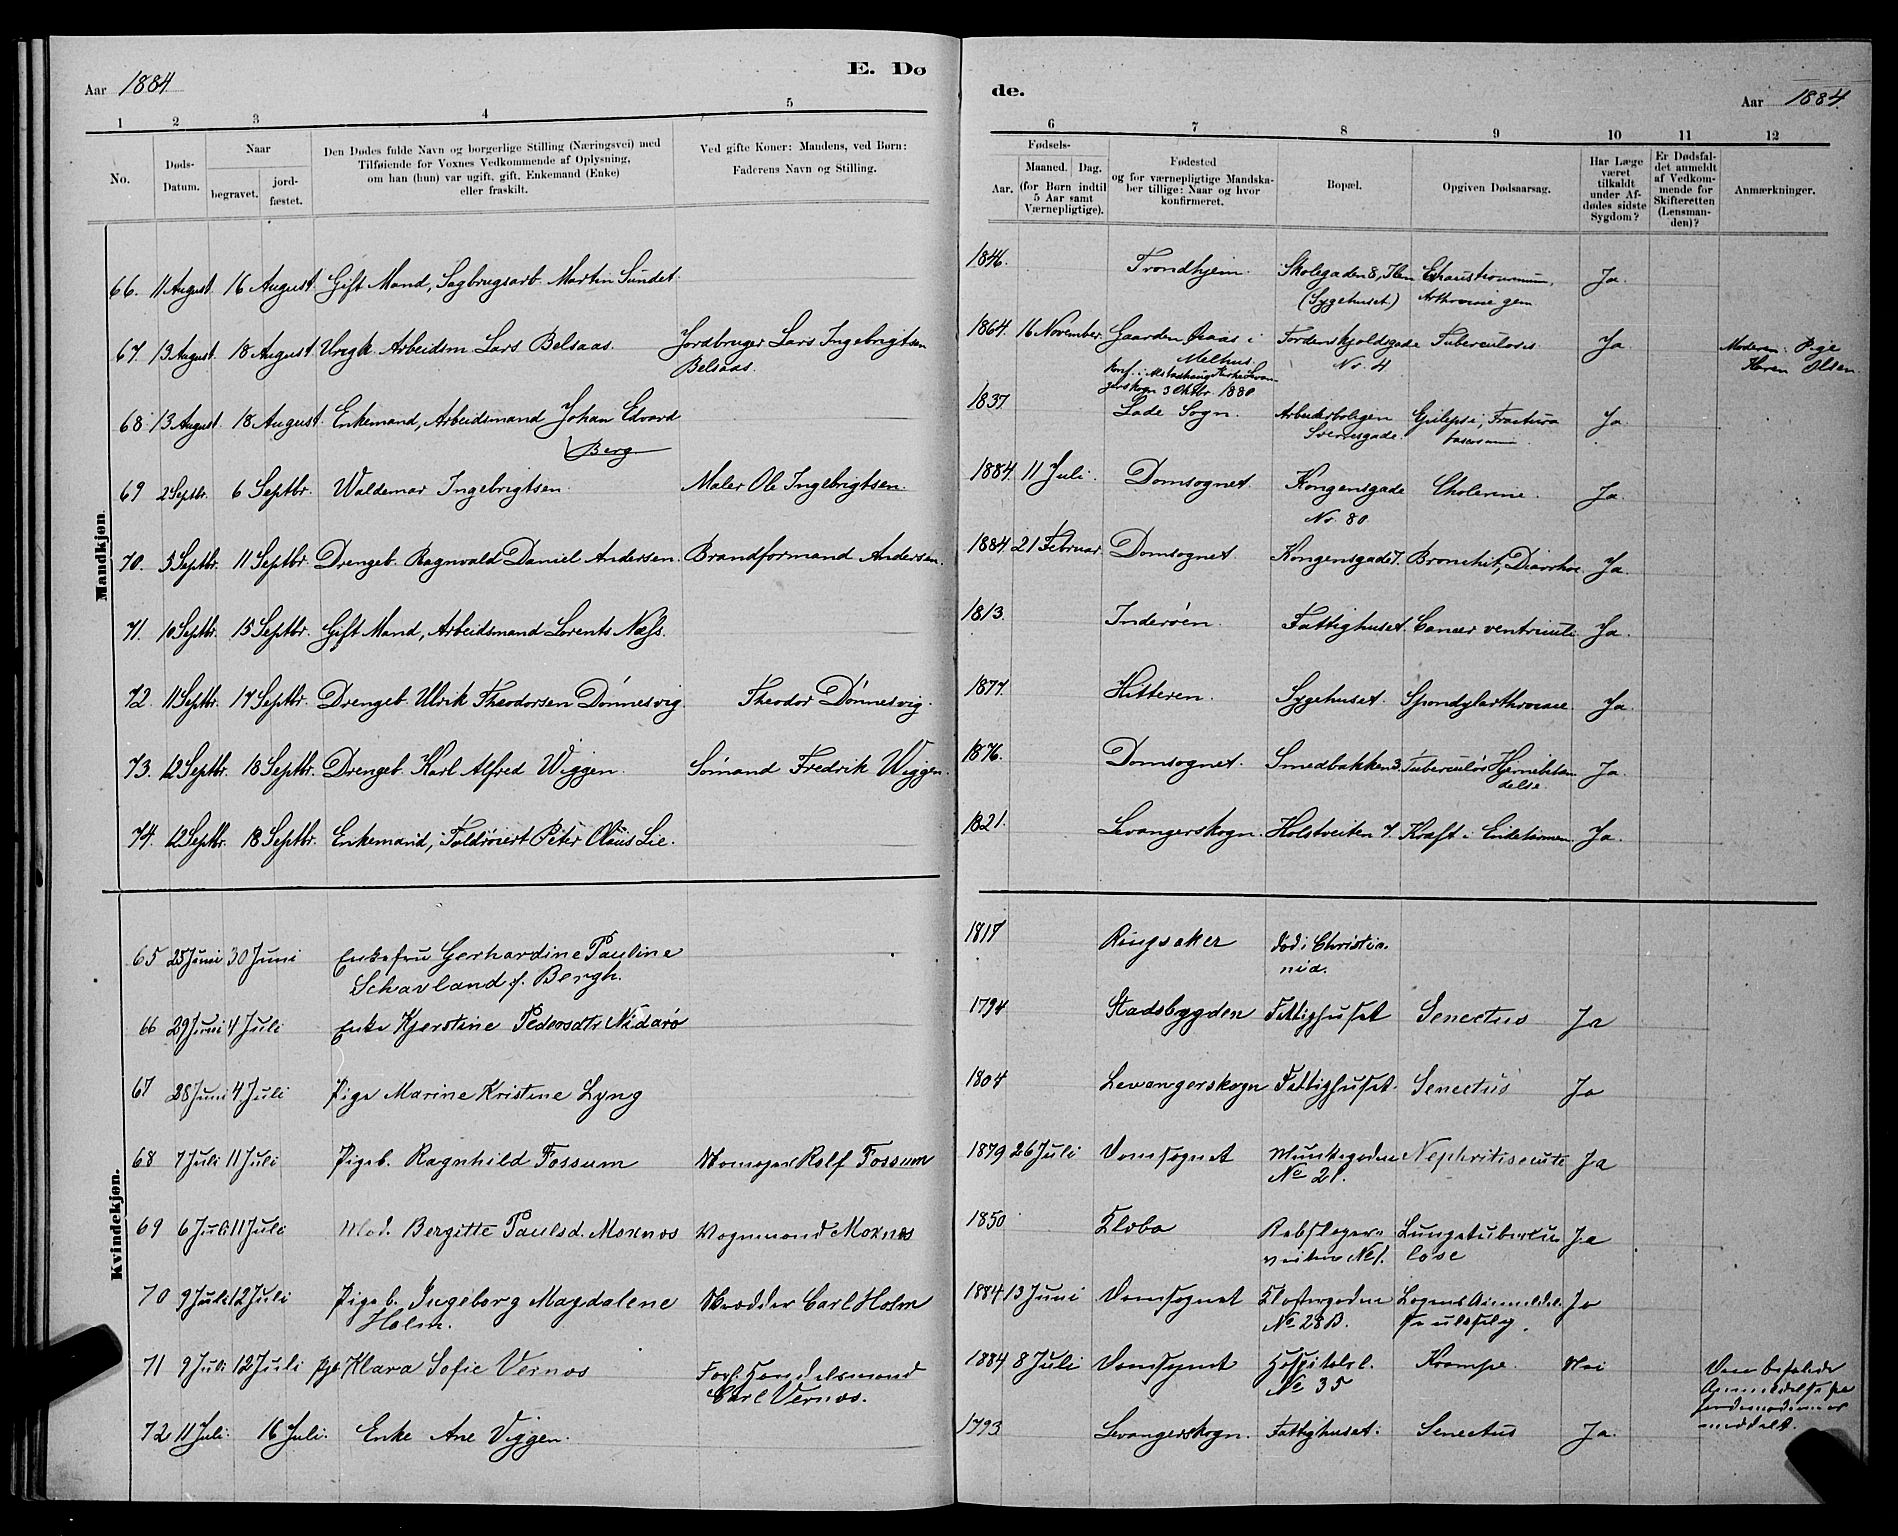 E. Dø
Aar 1884
1 2 3 4 5
No.
Døds-Datum.
Naar
begravet.
jord-fæstet.
Den Dødes fulde Navn og borgerlige Stilling (Næringsvei) med
Tilføiende for Voxnes Vedkommende af Oplysning,
om han (hun) var ugift, gift, Enkemand (Enke)
eller fraskilt.
Ved gifte Koner: Mandens, ved Børn:
Faderens Navn og Stilling.
Mandkjøn.
66. 11 August. 16 August. Gift Mand, Sagbrugsarb. Martin Sundet
67. 13 August. 18 August. Arbeidsm Lars Belsaas. Jordbruger Lars Ingebrigtsen
Belsaas.
68 13 August. 18 August. Enkemand, Arbeidsmand Johan Edvard
Berg
69 2 Septbr. 6 Septbr. Waldemar Ingebrigtsen. Maler Ole Ingebrigtsen.
70. 5 Septbr. 11 Septbr. Drengeb. Ragnvald Daniel Andersen. Brandformand Andersen.
71. 10 Septbr. 15 Septbr. Gift Mand, Arbeidsmand Lorents Næss.
72. 11 Septbr. 17 Septbr. Drengeb. Ulrik Theodorsen Dónnesvig Theodor Dónnesvig.
73. 12 Septbr. 18 Septbr. Drengeb. Karl Alfred Wiggen. Sómand Fredrik Wiggen.
74. 12 Septbr. 18 Septbr. Enkemand, Peter Olaus Lie.
Kvindekjøn.
65 25 Juni 30 Juni Enkefru Gerhardine Pauline
Schavland f. Bergh.
66 29 Juni 4 Juli Enke Kjerstine Pedersdtr Nidarø
67 28 Juni 4 Juli Pige Marine Kristine Lyng
68 7 Juli 11 Juli Pigeb. Ragnhild Fossum Rolf Fossum
69 6 Juli 11 Juli Mad. Bergitte Paulsd. Moxnes Vognmand Moxnes
70 9 Juli 12 Juli Pigeb. Ingeborg Magdalene Skrædder Carl Holm
Holm.
71 9 Juli 12 Juli Pgb. Klara Sofie Vernes Forh. Handelsmand
Carl Vernes.
72 11 Juli. 16 Juli. Enke Ane Viggen.
de.
Aar 1884.
6 7 8 9 10 11 12
Fødsels-
Aar.
Maaned. Dag.
(for Børn indtil
5 Aar samt
Værnepligtige).
Fødested
og for værnepligtige Mandska-
ber tillige: Naar og hvor
konfirmeret.
Bopæl.
Opgiven Dødsaarsag.
Har Læge
været
tilkaldt
under Af-
dødes sidste
Sygdom?
Er Dødsfal-
det anmeldt
af Vedkom-
mende for
Skifteretten
(Lensman-
den)?
Anmærkninger.
1846. Trondhjem. Skolegaden 8, Ilen
(Sygehuset.) Ja.
1864. 16 November. Gaarden i Tordenskjoldsgade Tuberculosis. Ja Moderen: Pige
Melhus. No. 4 Karen Olsen.
Konf. i Kirke Levan-
gerskogn 3 Oktbr. 1880
1837. Lade Sogn. Arbeiderboligen Epilepsi, Fractura Ja.
Sverresgade.
1884. 11 Juli. Domsognet. Kongensgade Cholerine. Ja.
No. 80.
1884. 21 Februar. Domsognet. Kongensgade 7. Bronchit, Diarrhoe. Ja.
1813. Inderöen. Fattighuset. Cancer ventriculi Ja.
1877. Hitteren. Sygehuset. Spondylarthrocace. Ja.
1876. Domsognet. Smedbakken 3. Tuberculøs Hjernebetæn-
delse. Ja.
1821. Levangerskogn. Holstveiten 7. Kræft i Endetarmen. Ja.
1817 Ringsaker død i Christia-
nia.
1794 Stadsbygden Fattighuset Senectus Ja
1804 Levangerskogn Fattighuset. Senectus Ja
1879 26 Juli Domsognet Munkegaden Nephritis acuta Ja
No 21.
1850 Reb­slager- Lungetubercu- Ja
veiten No 1. lose
1884 13 Juni Domsognet Klostergaden Ja
No 28 B.
1884 8 Juli Domsognet Hospitalsl. Krampe. Nei
No 35
1793 Levangerskogn. Fattighuset. Senectus Ja.
meddelt.